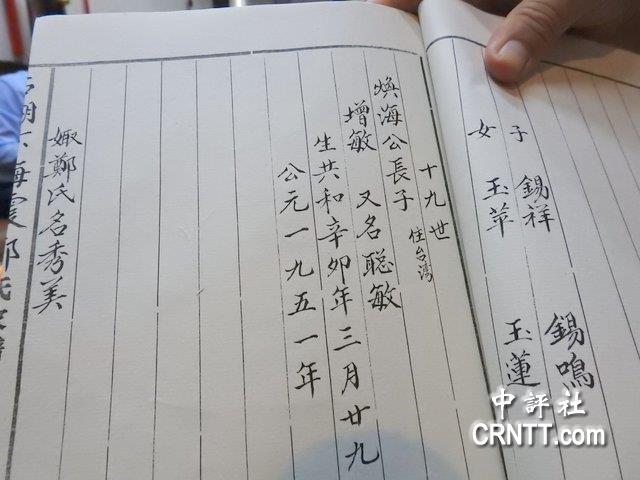 子 錫祥 錫鳴
女 玉苹 玉蓮
十九世 住台灣
煥海公長子
增敏 又名聰敏
生共和辛卯年三月廿九
公元一九五一年
娵鄭氏名秀美
中評社
CRNTT.com